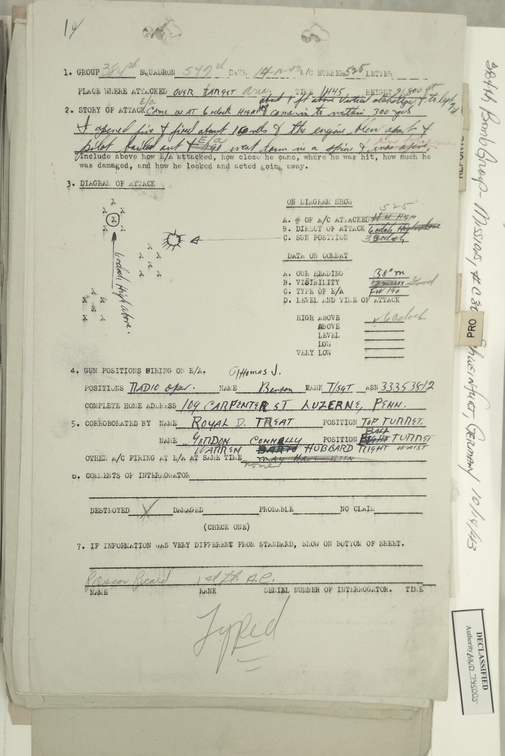 14
1. GROUP 384th SQUADRON 547th DATE A/C NUMBER 525 LETTER
PLACE WHERE ATTACKED OVER TARGET area TIME 1445 HEIGHT
2. STORY OF ATTACK E/A CAME IN AT 6 o'clock High & came in to within 300 yds
I opened fire & fired about 160 rds & the engine blew apart &
pilot bailed out & E/A went down in a spin &
Include above how E/A attacked, how close he came, where he was hit, how much he
was damaged, and how he looked and acted going away.
3. DIAGRAM OF ATTACK
6 o'clock High above.
ON DIAGRAM SHOW
525
A. # OF A/C ATTACKED
B. DIRECT OF ATTACK 6 o'clock High
C. SUN POSITION 3 o'clock
DATA ON COMBAT
A. OUR HEADING
B. VISIBILITY Good
C. TYPE OF E/A FW 190
D. LEVEL AND TIME OF ATTACK
HIGH ABOVE 6 o'clock
ABOVE
LEVEL
LOW
VERY LOW
4. GUN POSITIONS FIRING ON E/A. Thomas J.
POSITIONS RADIO oper. NAME Benson RANK T/SGT ASN 33353812
COMPLETE HOME ADDRESS 109 CARPENTER ST LUZERNE, PENN.
5. CORROBORATED BY NAME ROYAL D. TREAT POSITION TOP TURRET
NAME GORDON CONNOLLY POSITION BALL TURRET
WARREN HUBBARD RIGHT WAIST
OTHER A/C FIRING AT E/A AT SAME TIME none
6. COMMENTS OF INTERROGATOR
DESTROYED X DAMAGED PROBABLE NO CLAIM
(CHECK ONE)
7. IF INFORMATION WAS VERY DIFFERENT FROM STANDARD, SHOW ON BOTTOM OF SHEET.
1st Lt. A.C.
NAME RANK SERIAL NUMBER OF INTERROGATOR. TIME
Typed
384th Bomb Group Mission, Germany 10/14/43
PRO
DECLASSIFIED
Authority